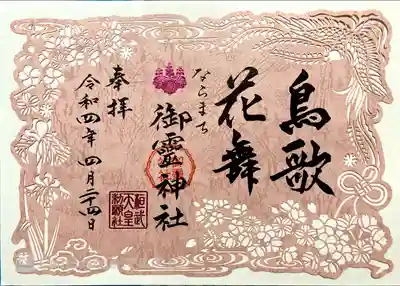 鳥歌
花舞
ならまち
御霊神社
奉拝
令和四年四月二十四日
桓武
天皇
勅願社